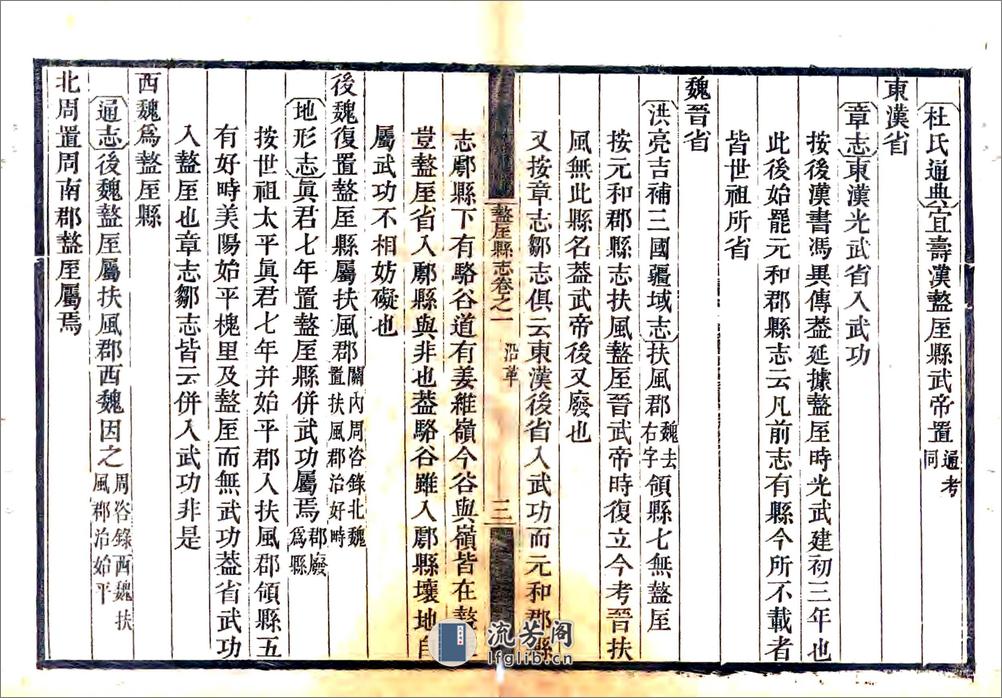 杜氏通典宜壽漢盩厔縣武帝置通考同
東漢省
章志東漢光武省入武功
按後漢書馮異傳葢延據盩厔時光武建初三年也
此後始罷元和郡縣志云凡前志有縣今所不載者
皆世祖所省
魏晉省
洪亮吉補三國疆域志扶風郡魏去右字領縣七無盩厔
按元和郡縣志扶風盩厔晉武帝時復立今考晉扶
風無此縣名葢武帝後又廢也
又按章志鄒志俱云東漢後省入武功而元和郡縣
盩厔縣志卷之一 沿革 三
志鄠縣下有駱谷道有姜維嶺今谷與嶺皆在盩
豈盩厔省入鄠縣與非也葢駱谷雖入鄠縣壤地自
屬武功不相妨礙也
後魏復置盩厔縣屬扶風郡關內周咨錄北魏置扶風郡治好畤
地形志眞君七年置盩厔縣併武功屬焉郡廢爲縣
按世祖太平眞君七年并始平郡入扶風郡領縣五
有好畤美陽始平槐里及盩厔而無武功葢省武功
入盩厔也章志鄒志皆云併入武功非是
西魏爲盩厔縣
通志後魏盩厔屬扶風郡西魏因之周咨錄西魏扶風郡治始平
北周置周南郡盩厔屬焉
流芳阁
lfglib.cn